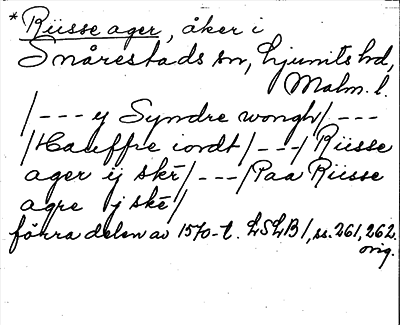 * Rüsse ager, åker i
Snårestads sn, Ljunits hd,
Malm. l.
/--- y Syndre wongh/---
/Hauffre iordt/---/Rüsse
ager ij skē/---/Paa Rüsse
agre j skē/
förra delen av 1570-t. LSLB 1, ss. 261, 262.
orig.